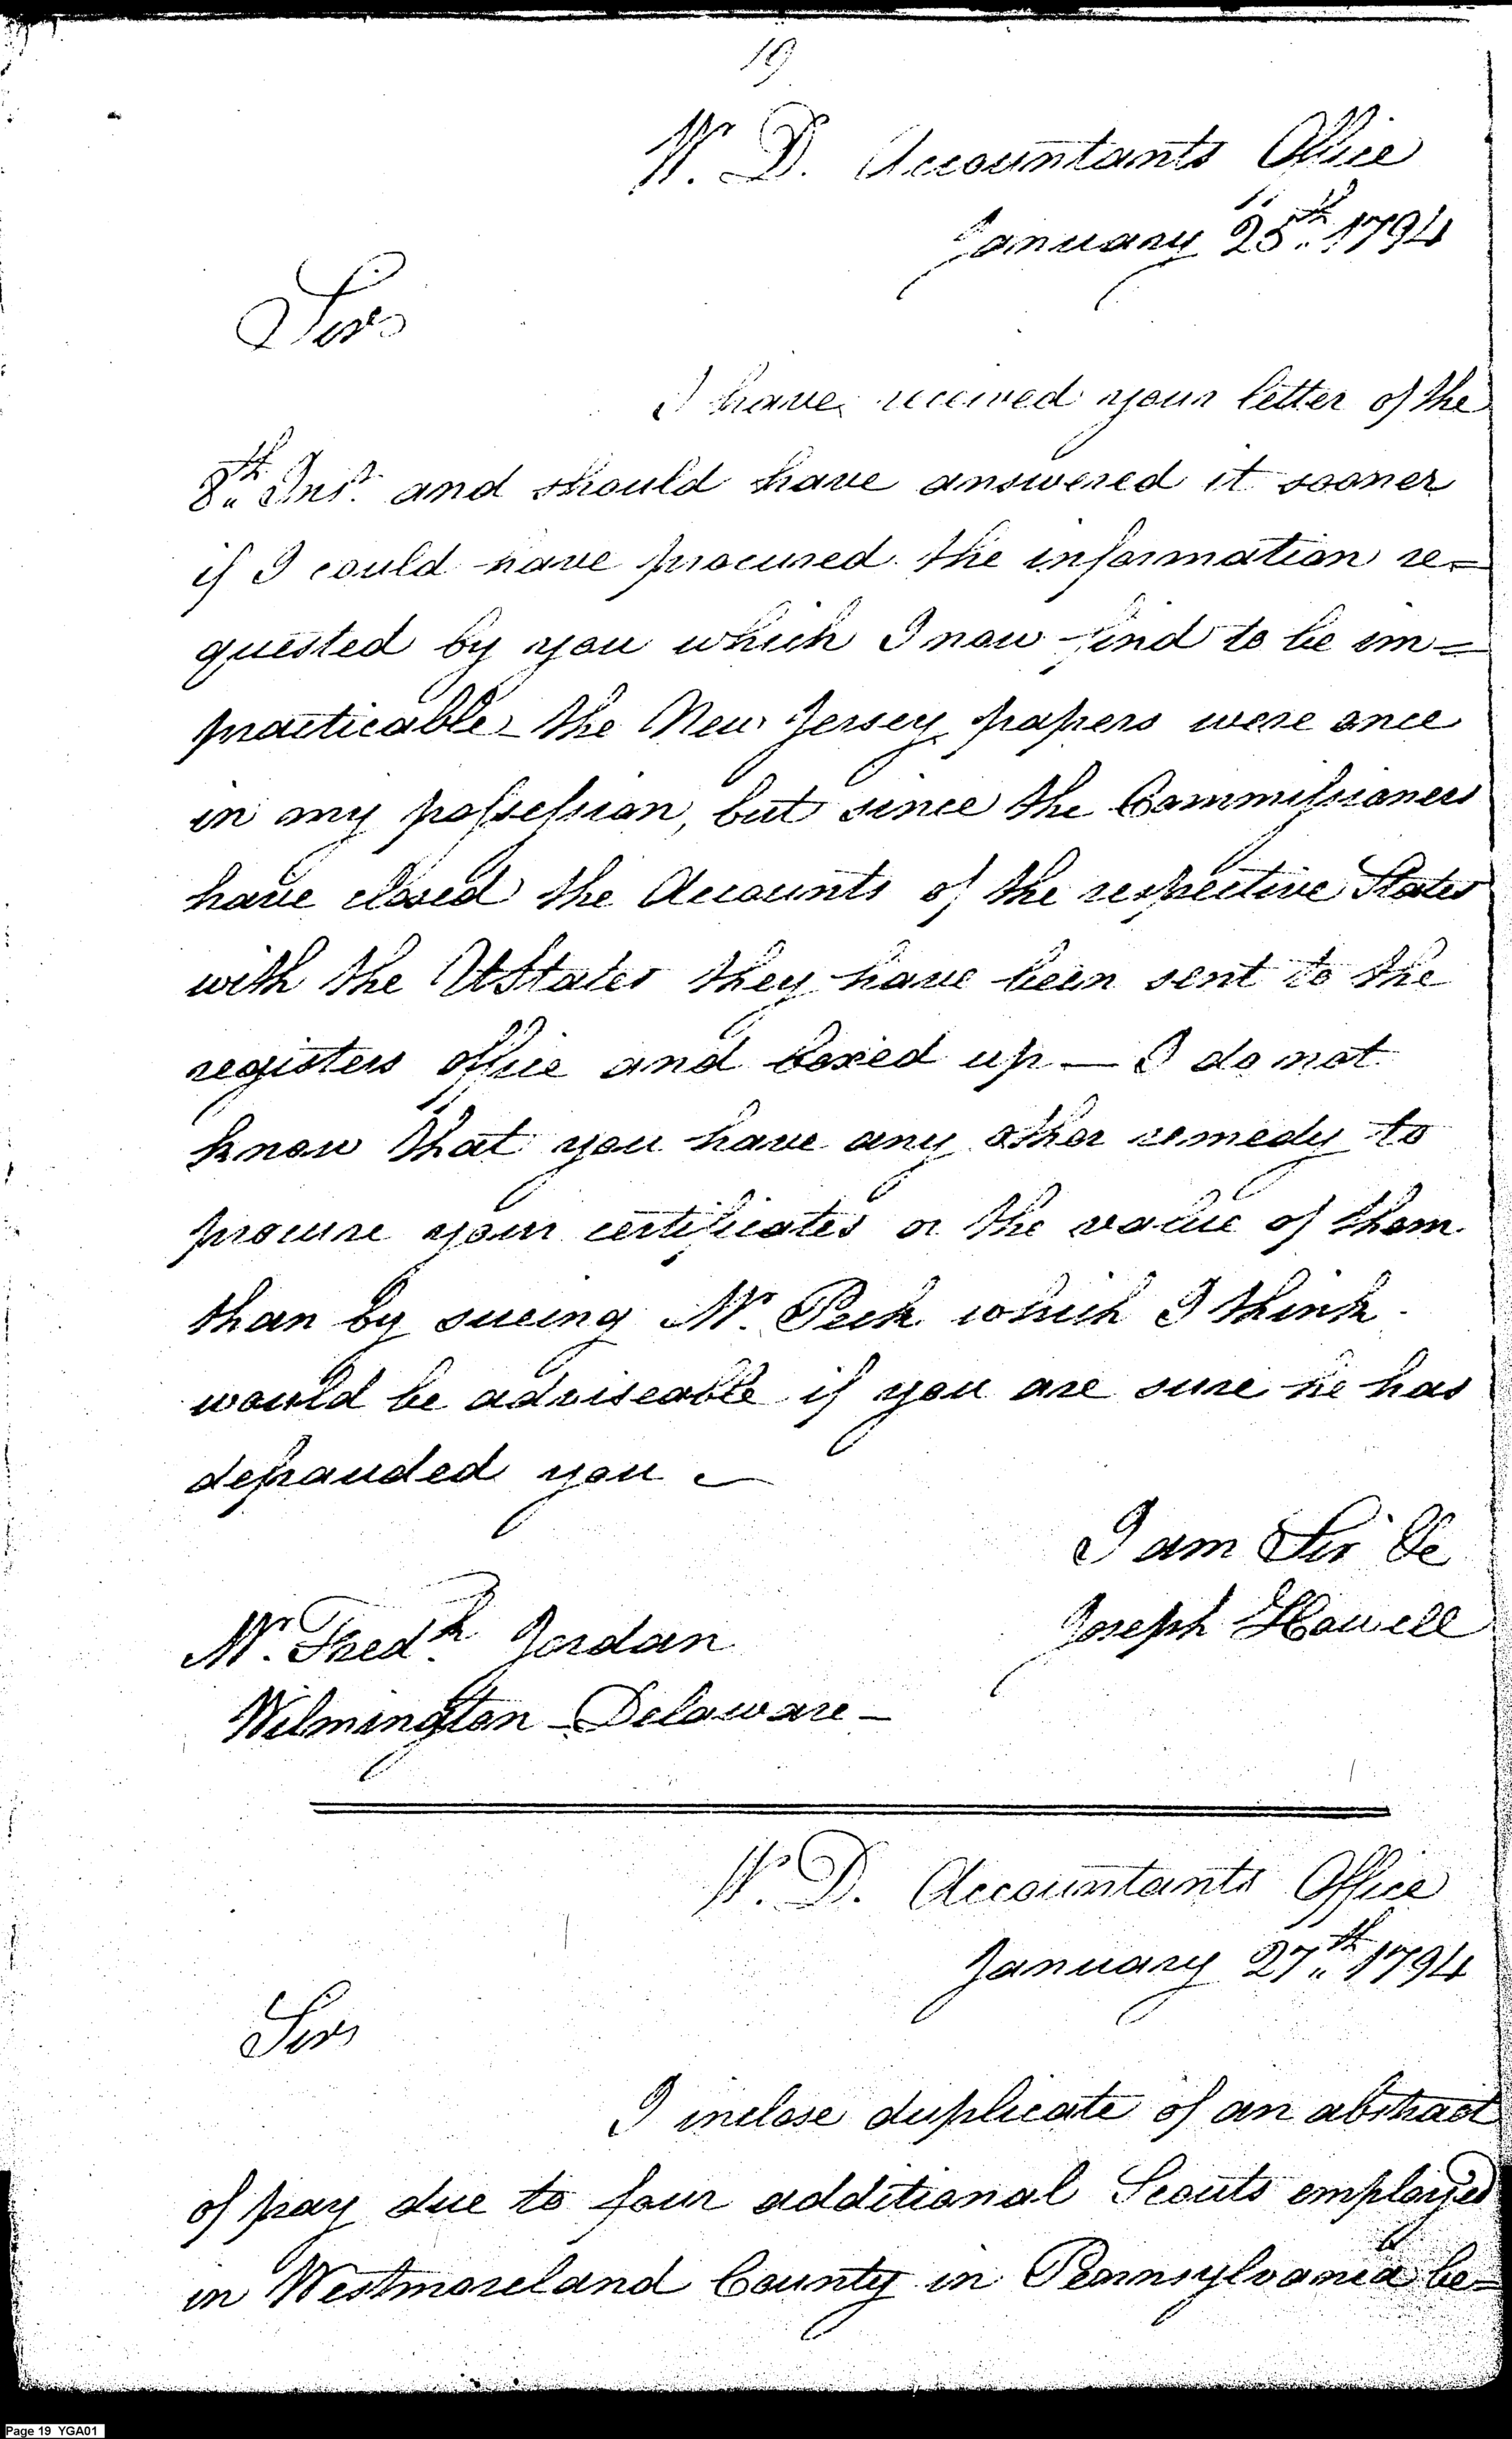 19
W. D. Accountants Office
January 25th. 1794
Sir
I have received your letter of the
8th. Inst. and should have answered it sooner
if I could have procured the information re=
quested by you which I now find to be im=
practicable - the New Jersey papers were once
in my possession, but since the Commissioners
have closed the Accounts of the respective States
with the UStates they have been sent to the
registers office and boxed up — I do not
know that you have any other remedy to
procure your certificates or the value of them
than by sueing Mr. Peck which I think
would be adviseable if you are sure he has
defrauded you —
I am Sir &c
Joseph Howell
Mr. Fredk. Jordan
Wilmington - Delaware -
W. D. Accountants Office
January 27th. 1794
Sir
I inclose duplicate of an abstract
of pay due to four additional Scouts employed
in Westmoreland County in Pennsylvania be=
Page 19 YGA01